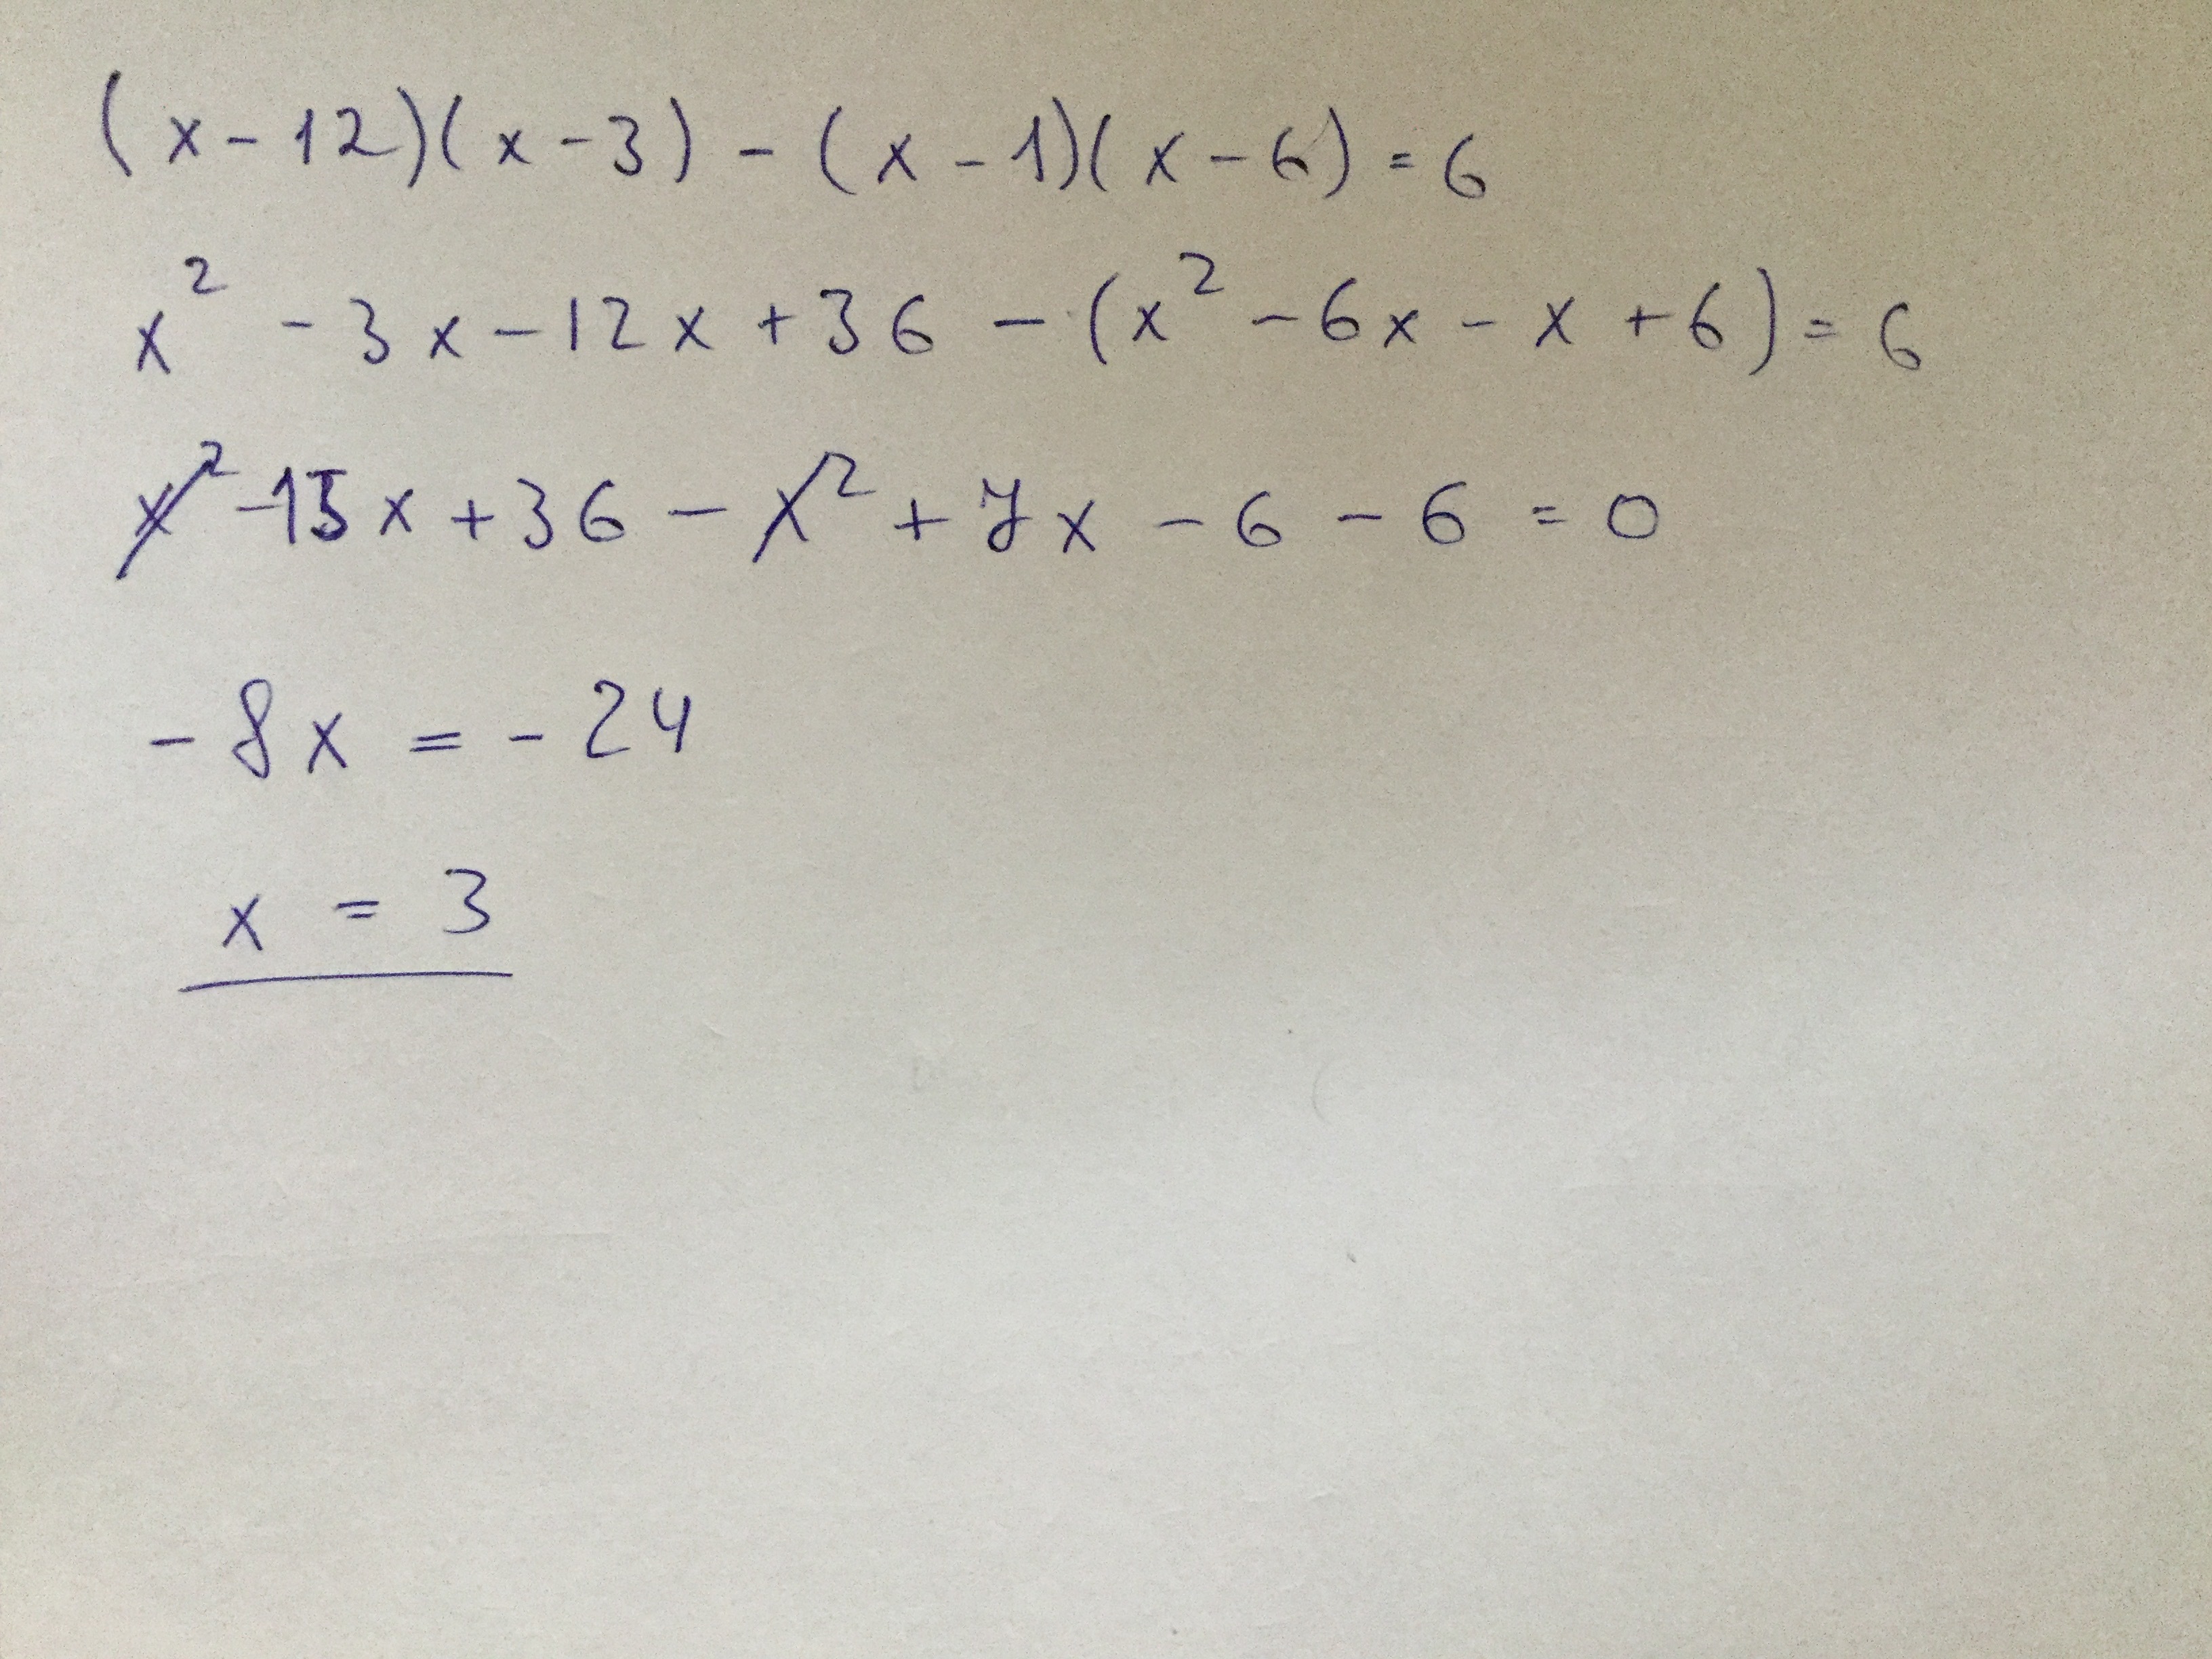 (x-12)(x-3)-(x-1)(x-6)=6
x² -3x-12x+36-(x²-6x-x+6)=6
x²-15x+36-x²+7x-6-6=0
-8x=-24
x=3